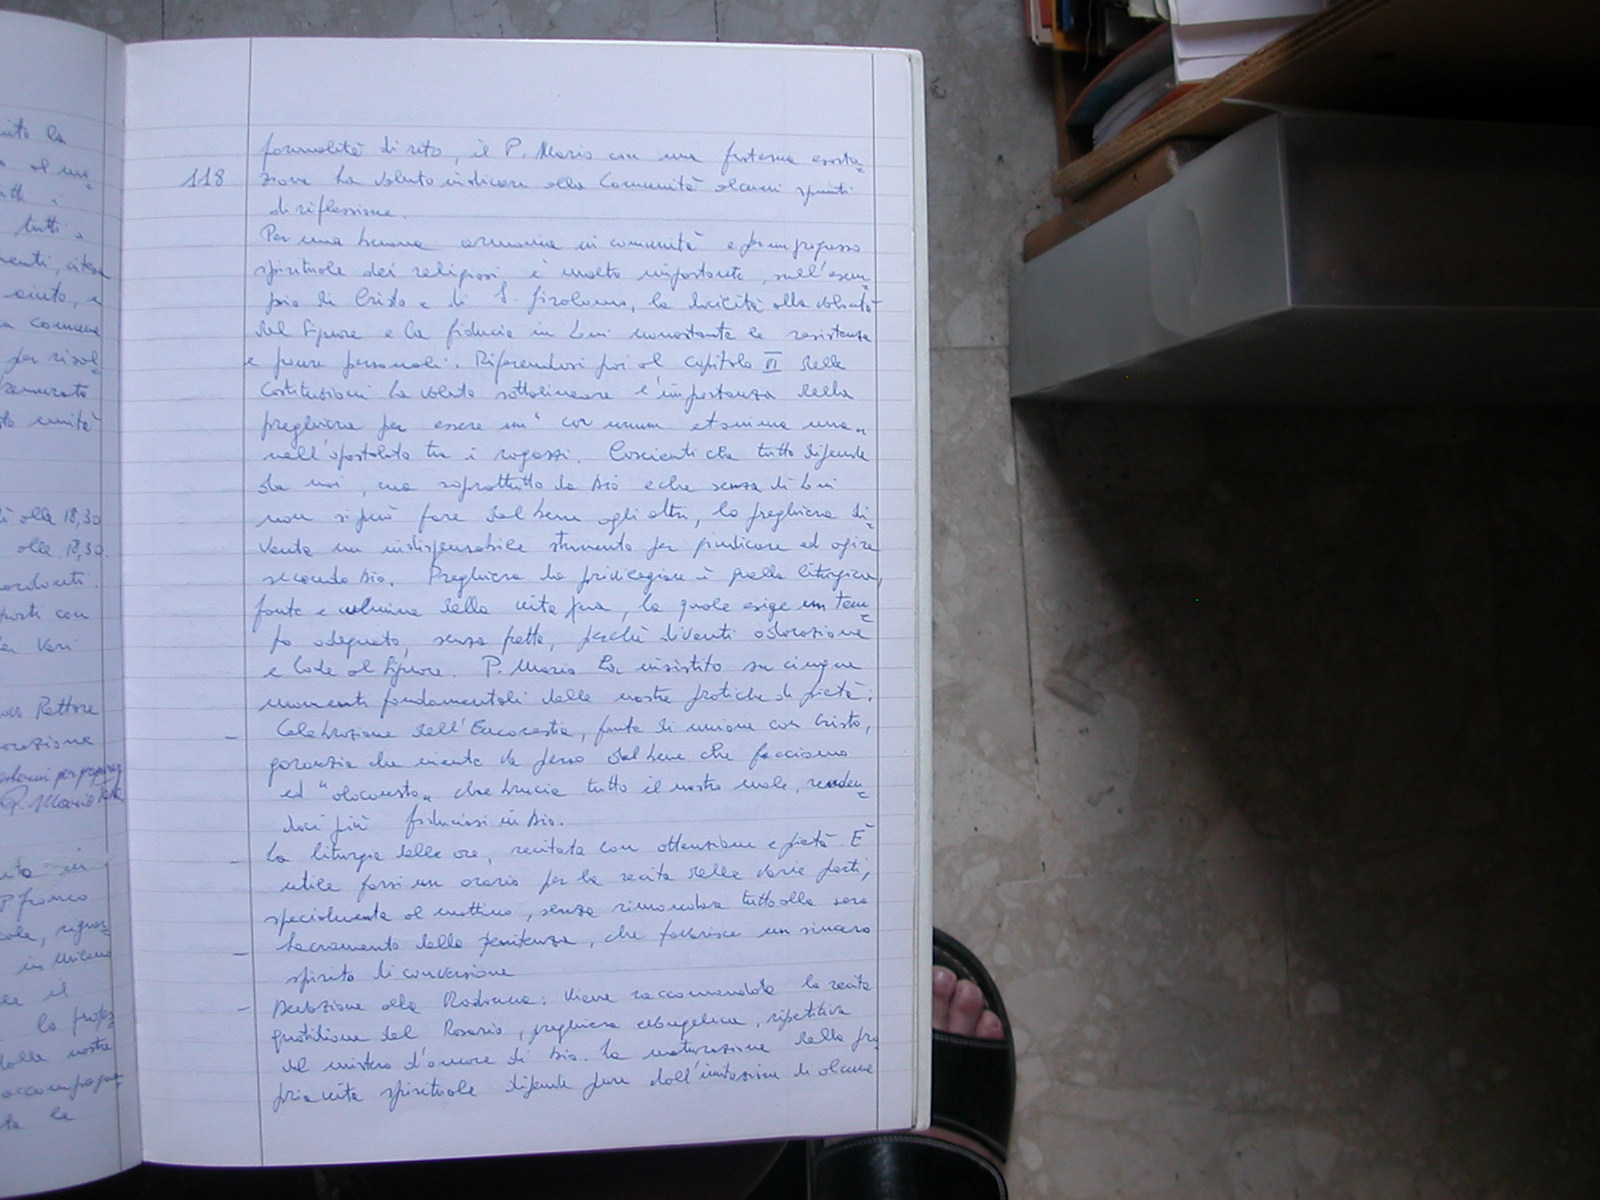 nito la
tutti e
menti, intesa
aiuto, e
a comune
per risol=
to unità
ì alle 18,30
alle 18,30.
posti con
dei vari
Rettore
P. Mario
P. Franco
in Milano
re il
la profes
dalle nostre
accompagna
te le
formalità di rito, il P. Mario con una fraterna esorta=
118
zione ha voluto indicare alla Comunità alcuni spunti
di riflessione.
Per una buona armonia in comunità e per un progresso
spirituale dei religiosi è molto importante, sull'esem=
pio di Cristo e di S. Girolamo, la docilità alla volontà
del Signore e la fiducia in Lui nonostante le resistenze
e paure personali. Riferendosi poi al capitolo VI delle
Costituzioni ha voluto sottolineare l'importanza della
preghiera per essere un "cor unum et anima una"
nell'apostolato tra i ragazzi. Coscienti che tutto dipende
da noi, ma soprattutto da Dio e che senza di Lui
non si può fare del bene agli altri, la preghiera di=
venta un indispensabile strumento per giudicare ed agire
secondo Dio. Preghiera da privilegiare è quella liturgica,
fonte e culmine della vita pia, la quale esige un tem=
po adeguato, senza fretta, perché diventi adorazione
e lode al Signore. P. Mario ha insistito su cinque
momenti fondamentali delle nostre pratiche di pietà:
- Celebrazione dell'Eucarestia, fonte di unione con Cristo,
garanzia che niente va perso del bene che facciamo
ed "olocausto" che brucia tutto il nostro male, renden=
doci più fiduciosi in Dio.
- La liturgia delle ore, recitata con attenzione e pietà. È
utile farsi un orario per la recita delle varie parti,
specialmente al mattino, senza rimandare tutto alla sera
- Sacramento della penitenza, che favorisce un sincero
spirito di conversione
- Devozione alla Madonna: viene raccomandata la recita
quotidiana del Rosario, preghiera evangelica, ripetitiva
del mistero d'amore di Dio. La maturazione della pro
pria vita spirituale dipende pure dall'imitazione di alcune